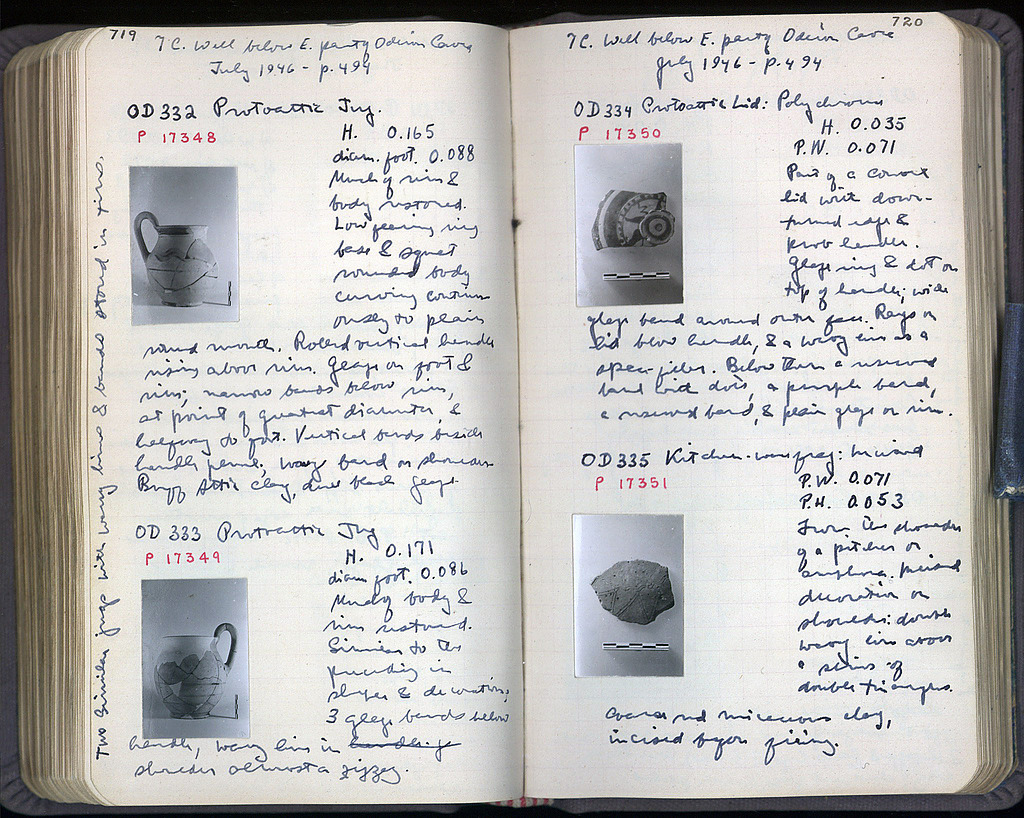 719
7 C. Well below E. party Odeion Cave
July 1946 - p. 494
OD 332 Protoattic Jug.
P 17348
H. 0.165
diam. foot. 0.088
Much of rim &
body restored.
Low flaring ring
base & squat
rounded body
curving continu-
ously to plain
round mouth. Rolled vertical handle
rising above rim. Glaze on foot &
rim; narrow bands below rim,
at point of greatest diameter, &
halfway to foot. Vertical bands beside
handle, wavy band on shoulder.
Buff Attic clay, dull black glaze.
OD 333 Protoattic Jug
P 17349
H. 0.171
diam foot. 0.086
Much of body &
rim restored.
Similar to the
preceding in
shape & decoration,
3 glaze bands below
handle, wavy line in
shoulder almost a zigzag.
Two similar jugs with wavy lines & bands stored in tins.
720
7 C. Well below E. party Odeion Cave
July 1946 - p. 494
OD 334 Protoattic Lid: Polychrome
P 17350
H. 0.035
P.W. 0.071
Part of a convex
lid with down-
turned edge &
knob handle.
Glaze ring & dot on
top of handle; wide
glaze band around outer face. Rays on
lid below handle, & a wavy line as a
space-filler. Below them a reserved
band with dots, a purple band,
a reserved band, & plain glaze on rim.
OD 335 Kitchen-ware frag: Incised
P 17351
P.W. 0.071
P.H. 0.053
From the shoulder
of a pitcher or
amphora. Incised
decoration on
shoulder: double
wavy line above
a series of
double triangles.
Coarse red micaceous clay,
incised before firing.